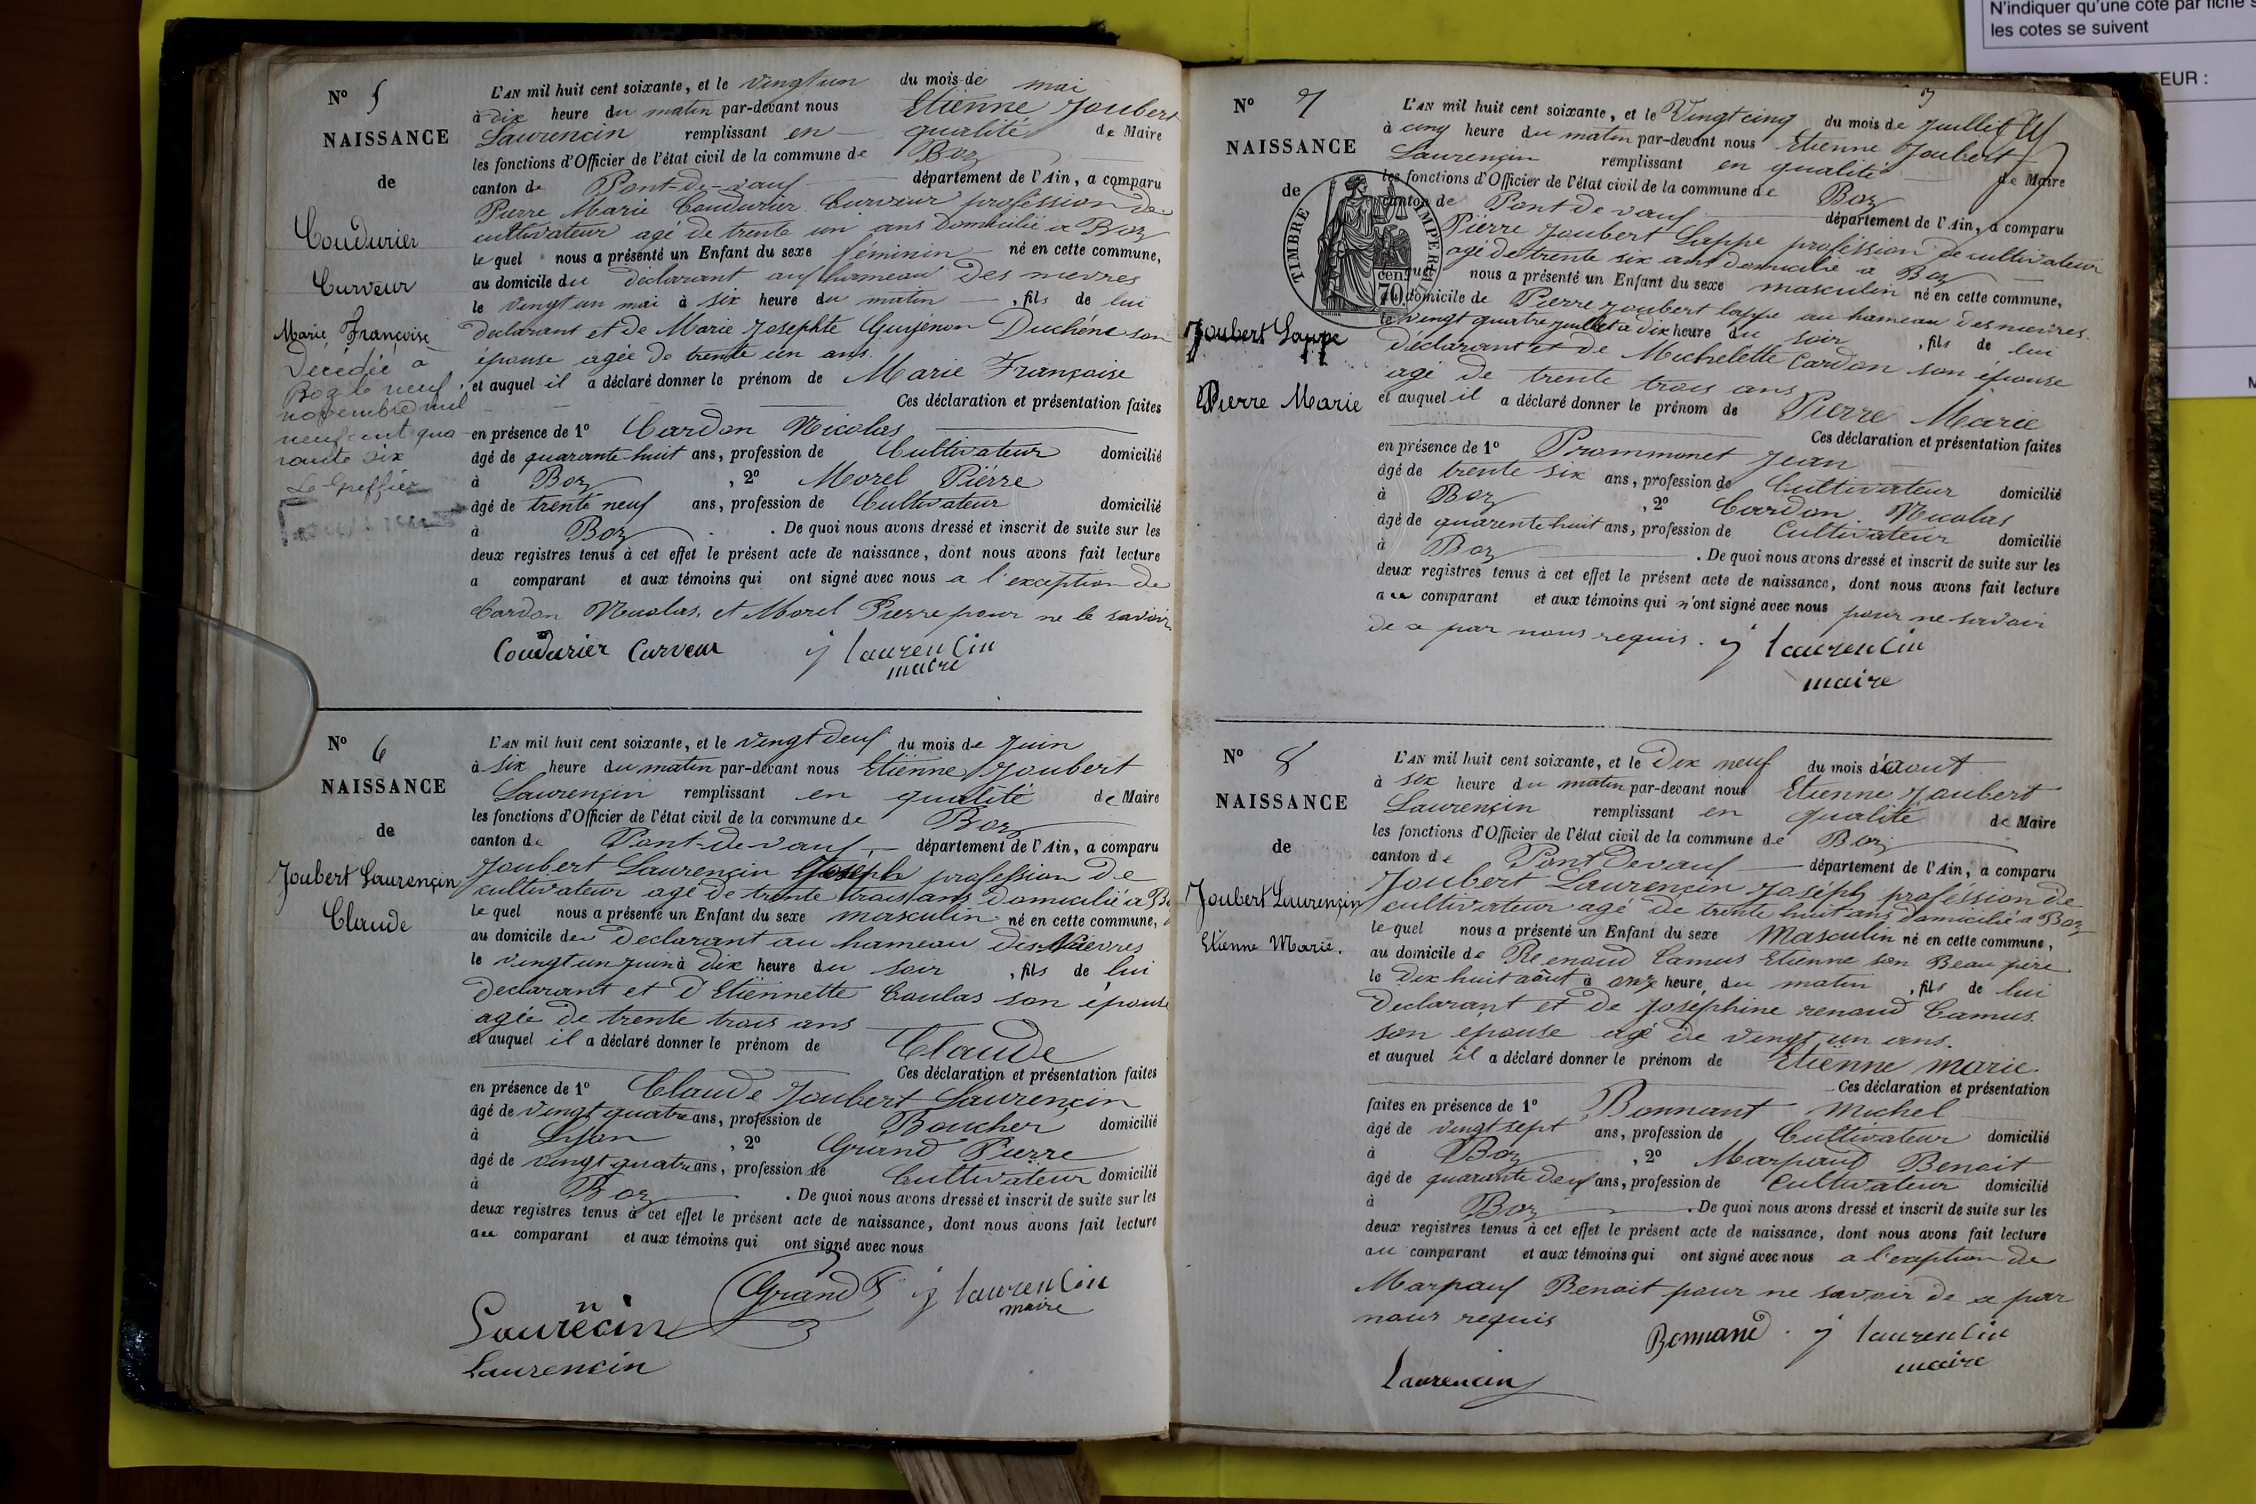 N'indiquer qu'une cote par fiche s
les cotes se suivent
TEUR :
N° 5
NAISSANCE
de
Coudurier
Curveur
Marie Françoise
Décédée à
Boz le neuf
novembre mil
neuf cent qua
rante six
Le Greffier
L'AN mil huit cent soixante, et le vingt un du mois de mai
à dix heure du matin par-devant nous Etienne Joubert
Laurencin remplissant en qualité de Maire
les fonctions d'Officier de l'état civil de la commune de Boz
canton de Pont-de-vaux département de l'Ain, a comparu
Pierre Marie Coudurier Curveur profession de
cultivateur agé de trente un ans domicilié a Boz
le quel nous a présenté un Enfant du sexe féminin né en cette commune,
au domicile du déclarant au hameau des nievres
le vingt un mai à six heure du matin , fils de lui
declarant et de Marie Josephte Guyénon Duchéne son
épouse agée de trente un ans.
et auquel il a déclaré donner le prénom de Marie Françoise
Ces déclaration et présentation faites
en présence de 1° Cardon Nicolas
âgé de quarante huit ans, profession de Cultivateur domicilié
à Boz , 2° Morel Piérre
âgé de trente neuf ans, profession de Cultivateur domicilié
à Boz . De quoi nous avons dressé et inscrit de suite sur les
deux registres tenus à cet effet le présent acte de naissance, dont nous avons fait lecture
a comparant et aux témoins qui ont signé avec nous a l'exception de
Cardon Nicolas, et Morel Pierre pour ne le savoir
Coudurier Curveur j laurencin
maire
N° 6
NAISSANCE
de
Joubert Laurençin
Claude
L'AN mil huit cent soixante, et le vingt deux du mois de Juin
à six heure du matin par-devant nous Etienne Joubert
Laurençin remplissant en qualité de Maire
les fonctions d'Officier de l'état civil de la commune de Boz
canton de Pont-de-vaux département de l'Ain, a comparu
Joubert Laurençin Joseph profession de
cultivateur agé de trente trois ans domicilié a Bo
le quel nous a présenté un Enfant du sexe masculin né en cette commune,
au domicile de declarant au hameau des Nievres
le vingt un juin à dix heure du soir , fils de lui
declarant et d'Etiennette Coulas son épouse
agée de trente trois ans
et auquel il a déclaré donner le prénom de Claude
Ces déclaration et présentation faites
en présence de 1° Claude Joubert Laurençin
âgé de vingt quatre ans, profession de Boucher domicilié
à Lyon , 2° Grand Pierre
âgé de vingt quatre ans, profession de Cultivateur domicilié
à Boz . De quoi nous avons dressé et inscrit de suite sur les
deux registres tenus à cet effet le présent acte de naissance, dont nous avons fait lecture
au comparant et aux témoins qui ont signé avec nous
Grand P j laurencin
maire
Laurecin
Laurencin
N° 7
NAISSANCE
de
TIMBRE IMPERIAL
70 cen
Joubert Lappe
Pierre Marie
L'AN mil huit cent soixante, et le Vingt cinq du mois de Juillet
à cinq heure du matin par-devant nous Etienne Joubert
Laurençin remplissant en qualité de Maire
les fonctions d'Officier de l'état civil de la commune de Boz
canton de Pont de vaux département de l'Ain, a comparu
Piérre Joubert Lappe profession de cultivateur
agé de trente six ans domicilié a Boz
quel nous a présenté un Enfant du sexe masculin né en cette commune,
au domicile de Pierre Joubert lappe au hameau des nievres
le vingt quatre juillet à dix heure du soir , fils de lui
déclarant et de Michelette Cardon son épouse
agé de trente trois ans
et auquel il a déclaré donner le prénom de Pierre Marie
Ces déclaration et présentation faites
en présence de 1° Prommonet Jean
âgé de trente six ans, profession de Cultivateur domicilié
à Boz , 2° Cardon Nicolas
âgé de quarente huit ans, profession de Cultivateur domicilié
à Boz . De quoi nous avons dressé et inscrit de suite sur les
deux registres tenus à cet effet le présent acte de naissance, dont nous avons fait lecture
au comparant et aux témoins qui n'ont signé avec nous pour ne savoir
de ce par nous requis. j laurencin
maire
N° 8
NAISSANCE
de
Joubert Laurençin
Etienne Marie.
L'AN mil huit cent soixante, et le Dix neuf du mois d'aout
à six heure du matin par-devant nous Etienne Joubert
Laurençin remplissant en qualité de Maire
les fonctions d'Officier de l'état civil de la commune de Boz
canton de Pont Devaux département de l'Ain, a comparu
Joubert Laurençin Joséph proféssion de
cultivateur agé de trente huit ans domicilié a Boz
le quel nous a présenté un Enfant du sexe Masculin né en cette commune,
au domicile de Renaud Camus Etienne son Beau père
le dix huit août à onze heure du matin , fils de lui
Declarant et de Joséphine renaud Camus
son epouse agé de vingt un ans.
et auquel il a déclaré donner le prénom de Etienne marie
Ces déclaration et présentation
faites en présence de 1° Bonnant Michel
âgé de vingt sept ans, profession de Cultivateur domicilié
à Boz , 2° Marpaud Benoit
âgé de quarante deux ans, profession de Cultivateur domicilié
à Boz . De quoi nous avons dressé et inscrit de suite sur les
deux registres tenus à cet effet le présent acte de naissance, dont nous avons fait lecture
au comparant et aux témoins qui ont signé avec nous a l'exeption de
Marpaux Benoit pour ne savoir de ce par
nous requis
Bonnand . j laurencin
maire
Laurencin